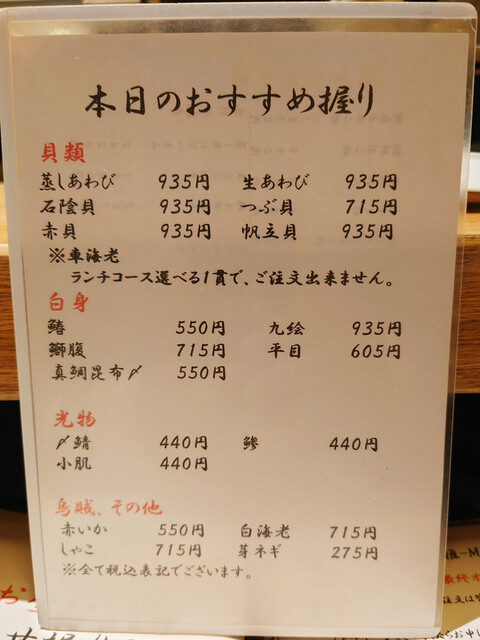 本日のおすすめ握り
貝類
蒸しあわび 935円 生あわび 935円
石陰貝 935円 つぶ貝 715円
赤貝 935円 帆立貝 935円
※車海老
ランチコース選べる1貫で、ご注文出来ません。
白身
鰆 550円 九絵 935円
鰤腹 715円 平目 605円
真鯛昆布〆 550円
光物
〆鯖 440円 鯵 440円
小肌 440円
烏賊、その他
赤いか 550円 白海老 715円
しゃこ 715円 芽ネギ 275円
※全て税込表記でございます。